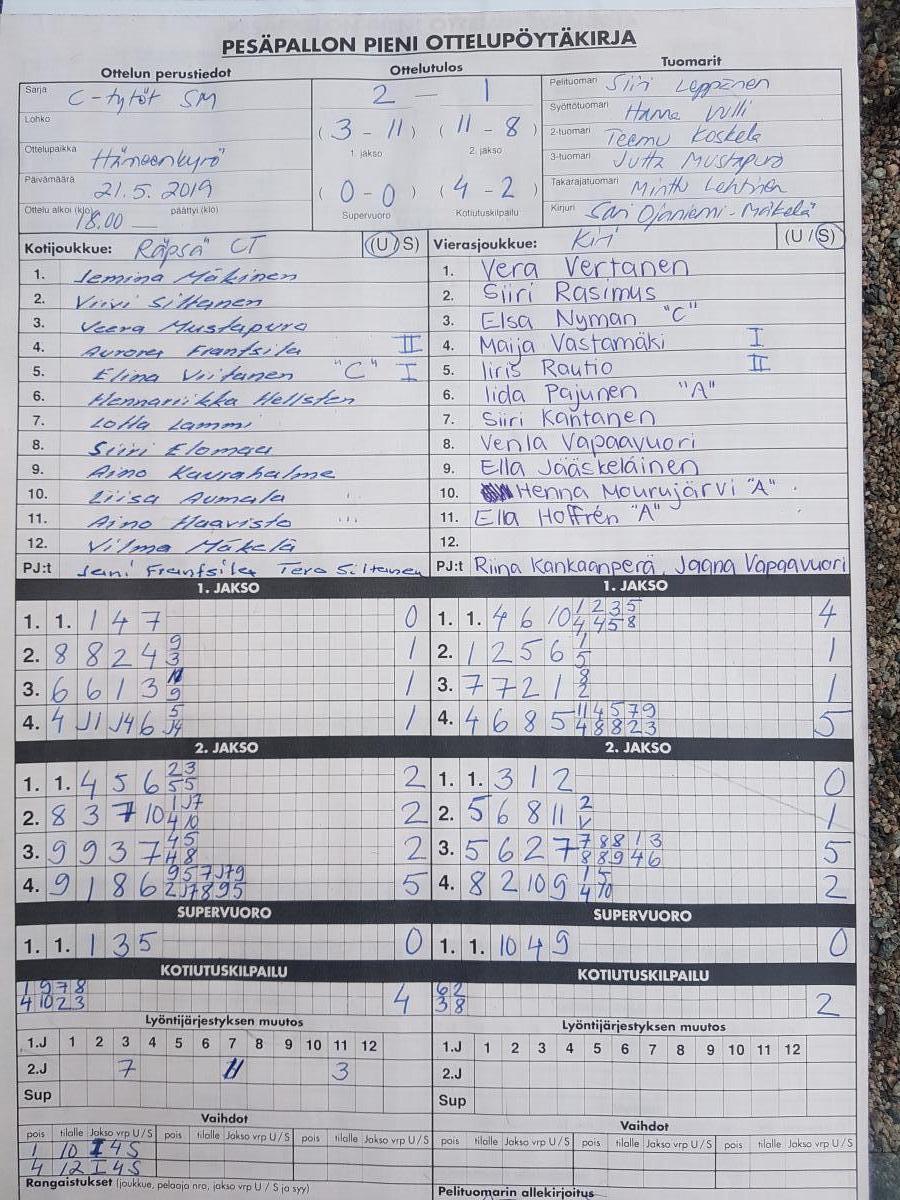 PESÄPALLON PIENI OTTELUPÖYTÄKIRJA
Ottelun perustiedot
Sarja C-tytöt SM
Lohko
Ottelupaikka Hämeenkyrö
Päivämäärä 21.5.2019
Ottelu alkoi (klo) 18.00 päättyi (klo) —
Ottelutulos
2 — 1
(3 - 11) (11 - 8)
1. jakso 2. jakso
(0 - 0) (4 - 2)
Supervuoro Kotiutuskilpailu
Tuomarit
Pelituomari Siiri Leppänen
Syöttötuomari Hanna
2-tuomari Teemu Koskela
3-tuomari Jutta Mustapuro
Takarajatuomari Minttu Lehtinen
Kirjuri Sari Ojaniemi-Mäkelä
Kotijoukkue: Räpsä CT (U/S)
1. Jemina Mäkinen
2. Viivi Siltanen
3. Veera Mustapuro
4. Aurora Frantsila II
5. Elina Viitanen "C" I
6. Hennariikka Hellsten
7. Lotta Lammi
8. Siiri Elomaa
9. Aino Kaurahalme
10. Liisa Aumala
11. Aino Haavisto
12. Vilma Mäkelä
PJ:t Jani Frantsila Tero Siltanen
Vierasjoukkue: Kiri (U/S)
1. Vera Vertanen
2. Siiri Rasimus
3. Elsa Nyman "C"
4. Maija Vastamäki I
5. Iiris Rautio II
6. Iida Pajunen "A"
7. Siiri Kantanen
8. Venla Vapaavuori
9. Ella Jääskeläinen
10. Henna Mourujärvi "A"
11. Ella Hoffrén "A"
12.
PJ:t Riina Kankaanperä, Jaana Vapaavuori
1. JAKSO
1. 1. 1 4 7 0
2. 8 8 2 4 9/3 1
3. 6 6 1 3 1
4. 4 J1 J4 6 5/J4 1
1. JAKSO
1. 1. 4 6 10 1/4 2/4 3/5 5/8 4
2. 1 2 5 6 1/5 1
3. 7 7 2 1 8/2 1
4. 4 6 8 5 11/4 4/8 5/8 7/2 9/3 5
2. JAKSO
1. 1. 4 5 6 2/5 3/5 2
2. 8 3 7 10 1/4 J7/10 2
3. 9 9 3 7 4/4 5/8 2
4. 9 1 8 6 9/2 5/J7 7/8 J7/9 9/5 5
2. JAKSO
1. 1. 3 1 2 0
2. 5 6 8 11 2/V 1
3. 5 6 2 7 7/8 8/8 8/9 1/4 3/6 5
4. 8 2 10 9 1/4 5/10 2
SUPERVUORO
1. 1. 1 3 5 0
SUPERVUORO
1. 1. 10 4 9 0
KOTIUTUSKILPAILU
1/4 9/10 7/2 8/3 4
KOTIUTUSKILPAILU
6/3 2/8 2
Lyöntijärjestyksen muutos
1.J 1 2 3 4 5 6 7 8 9 10 11 12
2.J 7 11 3
Sup
Lyöntijärjestyksen muutos
1.J 1 2 3 4 5 6 7 8 9 10 11 12
2.J
Sup
Vaihdot
pois tilalle Jakso vrp U/S pois tilalle Jakso vrp U/S pois tilalle Jakso vrp U/S
1 10 I 4 S
4 12 I 4 S
Rangaistukset (joukkue, pelaaja nro, jakso vrp U/S ja syy)
Vaihdot
pois tilalle Jakso vrp U/S pois tilalle Jakso vrp U/S pois tilalle Jakso vrp U/S
Pelituomarin allekirjoitus